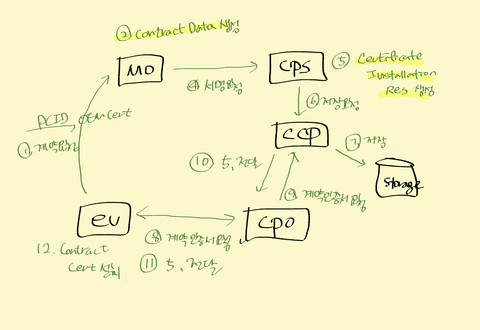 ② Contract Data 생성
MO
④ 서명요청
CPS
⑤ Certificate
Installation
Res 생성
⑥ 저장요청
PCID OEM Cert
① 계약요청
CCP
⑦ 저장
Storage
⑩ 5, 전달
⑨ 계약인증서요청
EV
CPO
⑧ 계약인증서요청
⑪ 5, 전달
12. Contract
Cert 설치